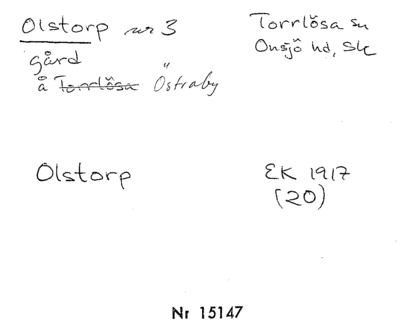 Olstorp nr 3
Torrlösa sn
Onsjö hd, Sk
gård
å Torrlösa Östraby
Olstorp
EK 1917
(20)
Nr 15147